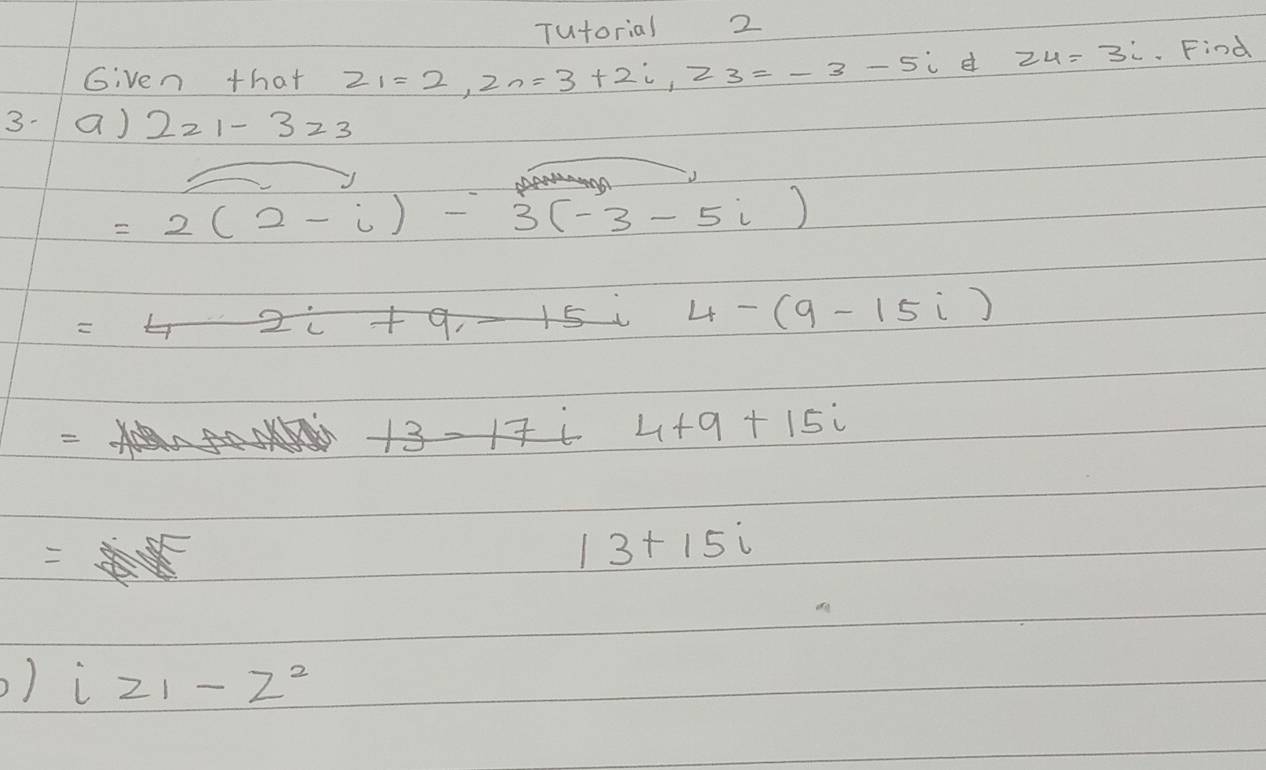 Tutorial 2
Given that z1 = 2, zn = 3 + 2i, z3 = - 3 - 5i & z4 = 3i. Find
3. a) 2z1 - 3z3
= 2(2 - i) - 3(-3 - 5i)
= 4 - 2i + 9 - 15i 4 - (9 - 15i)
= 13 - 17i 4 + 9 + 15i
= 13 + 15i
) i z1 - z²